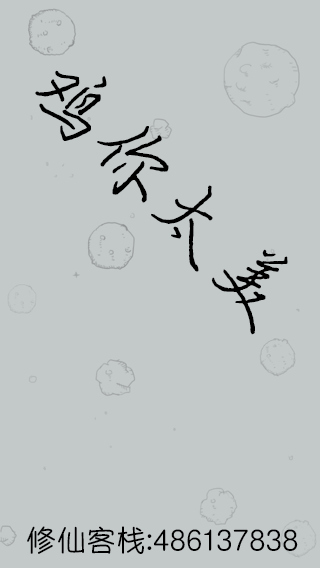 鸡你太美
修仙客栈:486137838